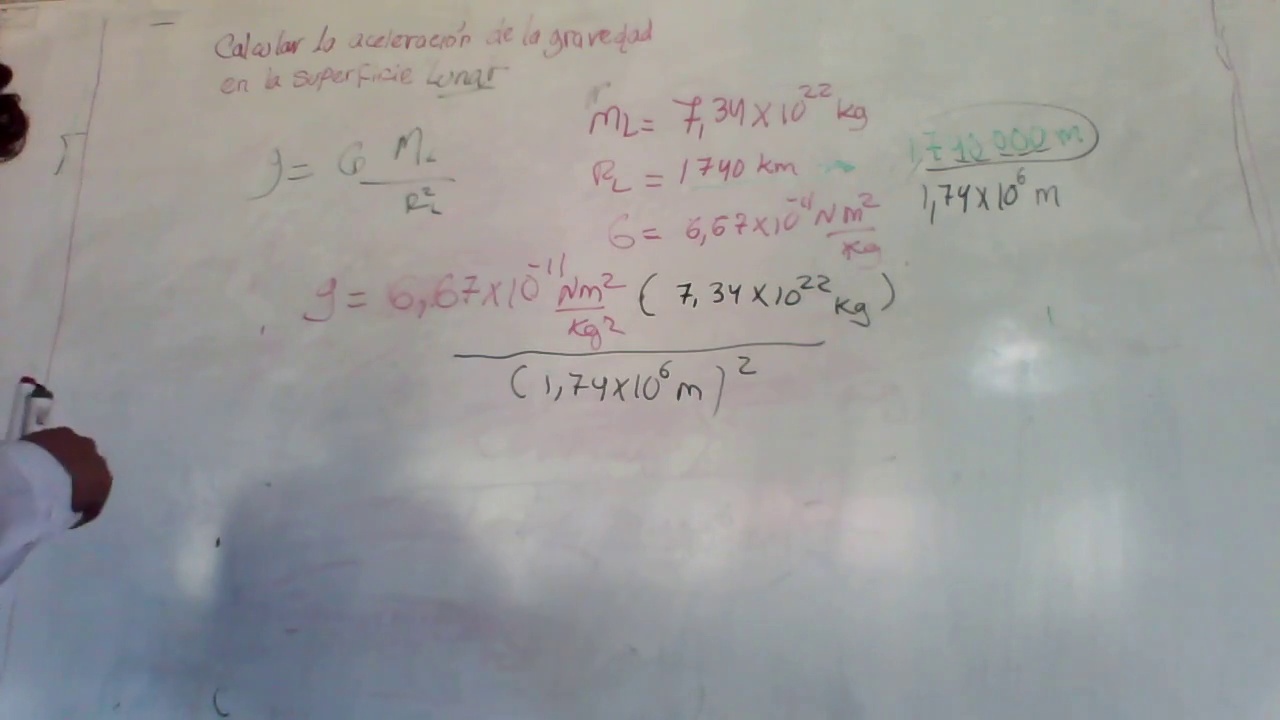 Calcular la aceleración de la gravedad
en la superficie Lunar
g = G M_L / R_L^2
M_L = 7,34 x 10^22 kg
R_L = 1740 km
1,740 000 m
1,74 x 10^6 m
G = 6,67 x 10^-11 Nm^2 / kg
g = 6,67 x 10^-11 Nm^2 / kg^2 ( 7,34 x 10^22 kg )
( 1,74 x 10^6 m )^2